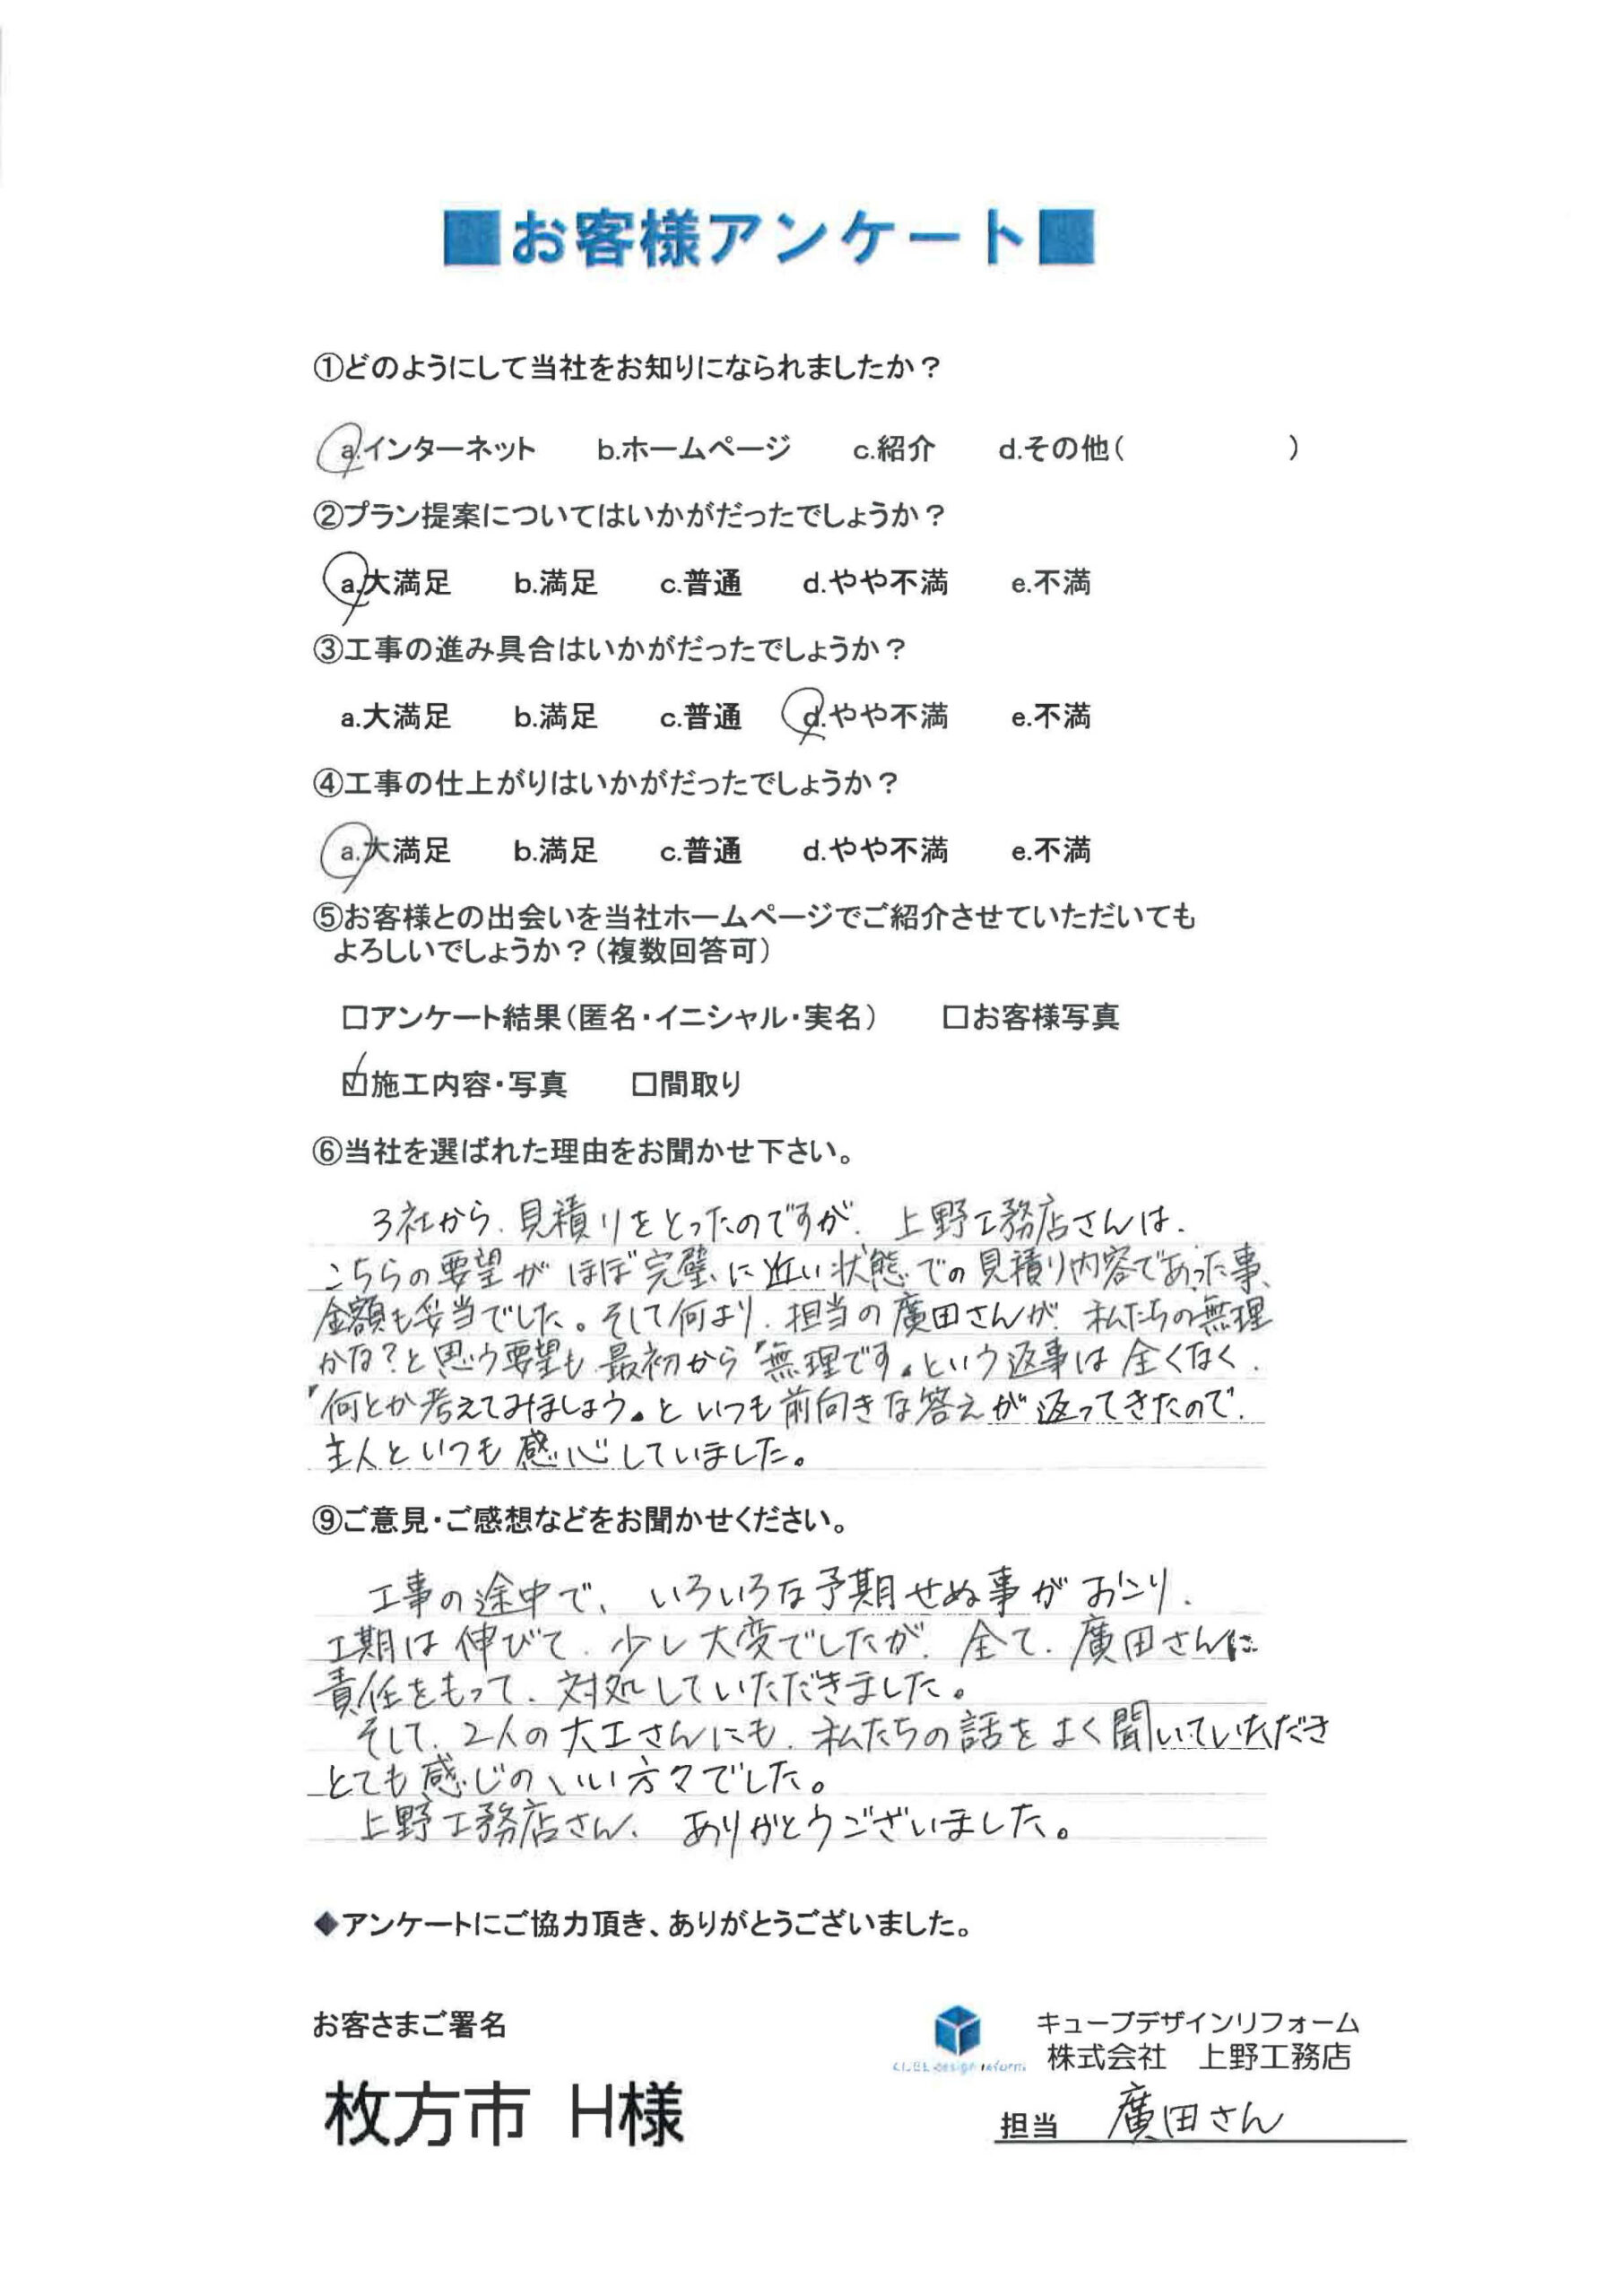 ■お客様アンケート■
①どのようにして当社をお知りになられましたか？
a.インターネット b.ホームページ c.紹介 d.その他( )
②プラン提案についてはいかがだったでしょうか？
a.大満足 b.満足 c.普通 d.やや不満 e.不満
③工事の進み具合はいかがだったでしょうか？
a.大満足 b.満足 c.普通 d.やや不満 e.不満
④工事の仕上がりはいかがだったでしょうか？
a.大満足 b.満足 c.普通 d.やや不満 e.不満
⑤お客様との出会いを当社ホームページでご紹介させていただいても
よろしいでしょうか？（複数回答可）
□アンケート結果（匿名・イニシャル・実名） □お客様写真
☑施工内容・写真 □間取り
⑥当社を選ばれた理由をお聞かせ下さい。
3社から、見積りをとったのですが、上野工務店さんは、
こちらの要望がほぼ完璧に近い状態での見積り内容であった事、
金額も妥当でした。そして何より、担当の廣田さんが、私たちの無理
かな?と思う要望も、最初から「無理です。という返事は全くなく、
「何とか考えてみましょう。といつも前向きな答えが返ってきたので、
主人といつも感心していました。
⑨ご意見・ご感想などをお聞かせください。
工事の途中で、いろいろな予期せぬ事がおこり、
工期は伸びて、少し大変でしたが、全て、廣田さんに
責任をもって、対処していただきました。
そして、2人の大工さんにも、私たちの話をよく聞いていただき
とても感じのいい方々でした。
上野工務店さん、ありがとうございました。
◆アンケートにご協力頂き、ありがとうございました。
お客さまご署名
枚方市 H様
キューブデザインリフォーム
株式会社 上野工務店
担当 廣田さん